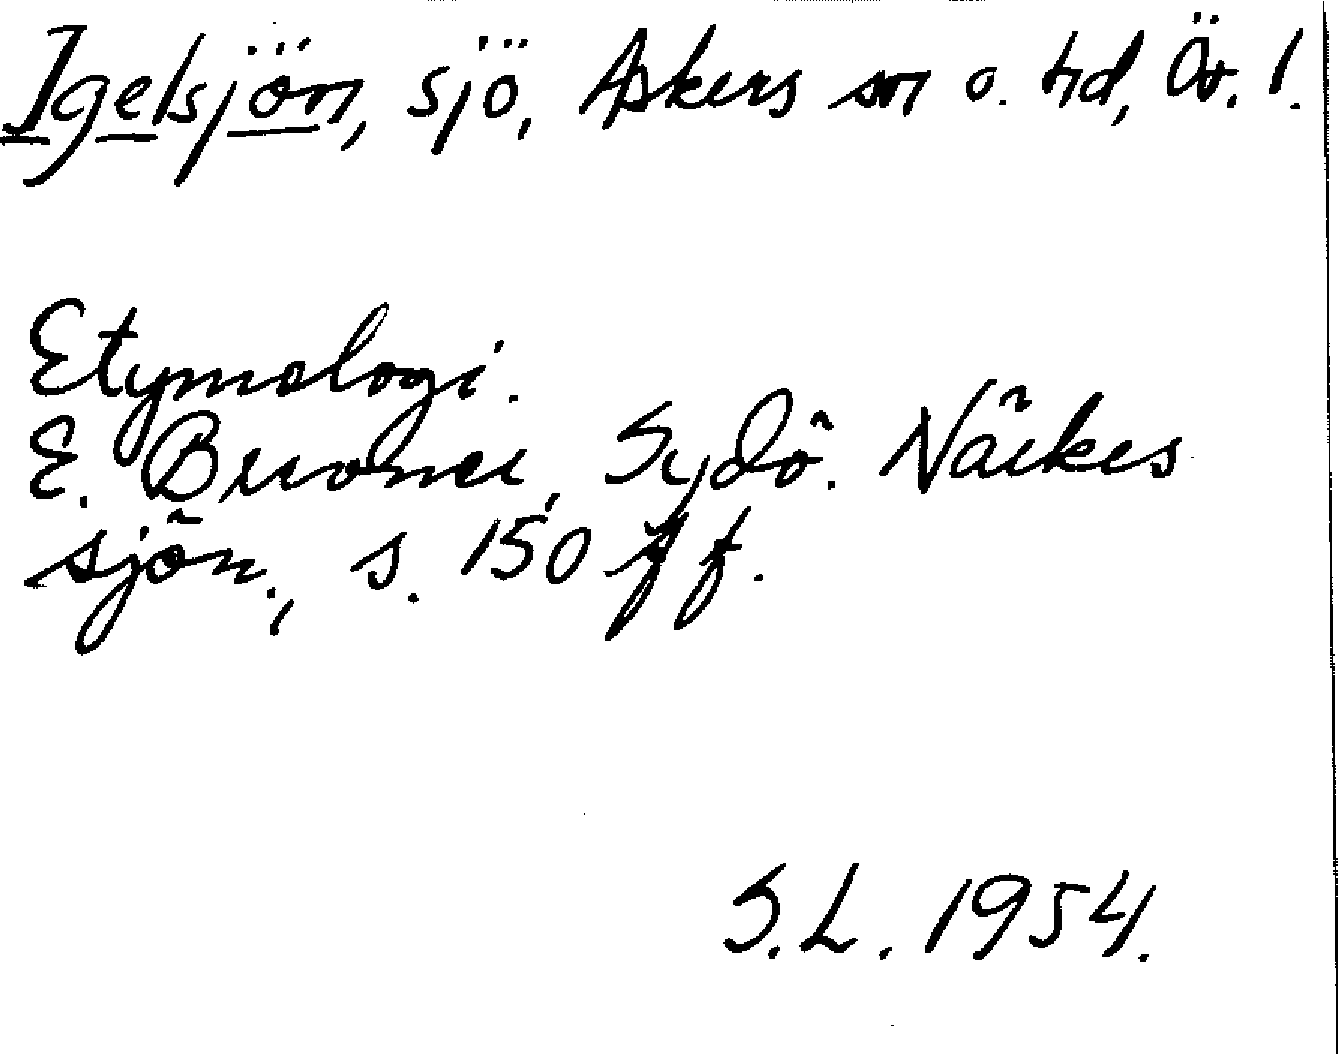 Igelsjön, sjö, Askers sn o. hd, Ör. l.
Etymologi.
E. Bruoner, Sydö. Närkes
sjön., s. 150 ff.
S.L. 1954.